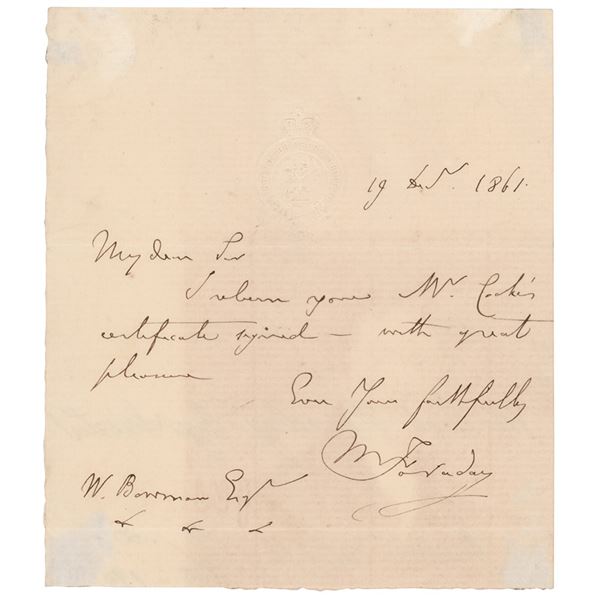 1861.
My dear Sir
I return you Mr. Cooke's
certificate signed — with great
pleasure
Ever Yours faithfully
M Faraday
W. Bowman Esqr
& & &